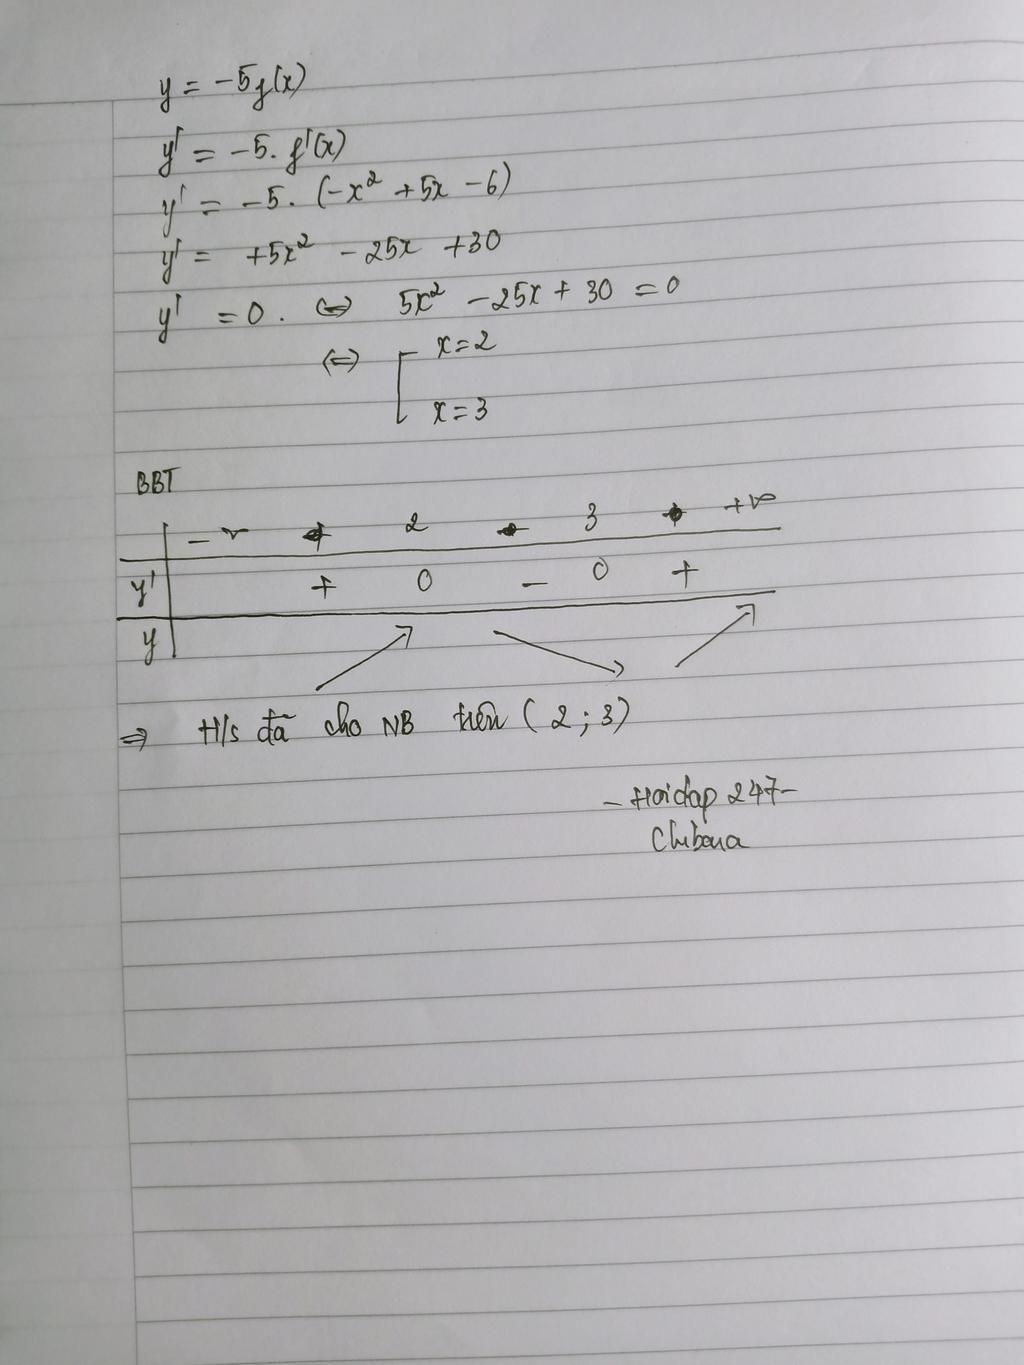 y = -5f(x)
y' = -5. f'(x)
y' = -5. (-x² +5x -6)
y' = +5x² -25x +30
y' = 0. ⇔ 5x² -25x + 30 = 0
⇔ [ x=2
x=3
BBT
-∞ 2 3 +∞
y' + 0 - 0 +
y ↗ ↘ ↗
⇒ H/s đã cho NB trên (2;3)
- Hoidap 247-